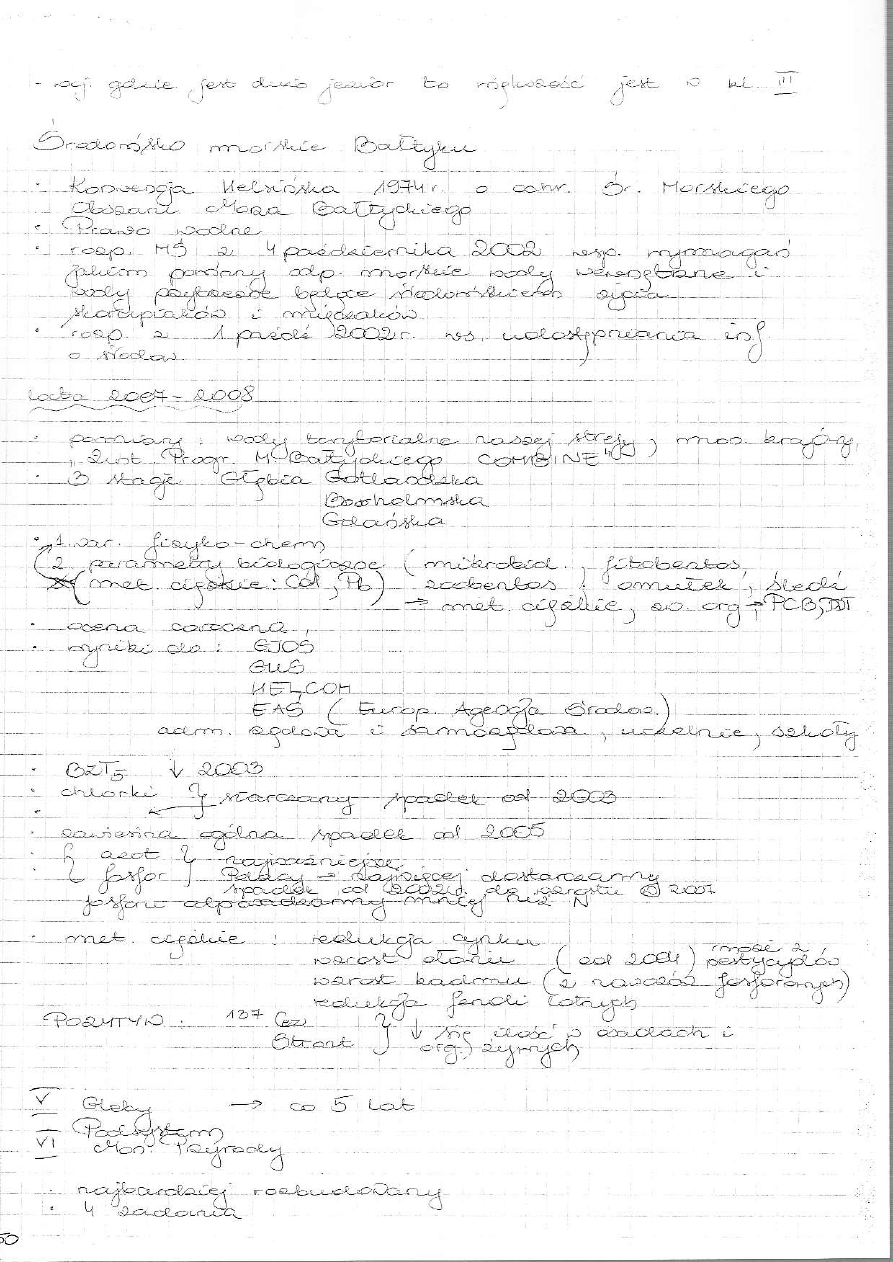 - woj. gdzie jest dużo jezior to większość jest w kl. III
Środowisko morskie Bałtyku
· Konwencja Helsińska 1974 r. o ochr. Śr. Morskiego
Obszaru Morza Bałtyckiego
· Prawo wodne
· rozp. MŚ z 4 października 2002 wsp. wymagań
jakim powinny odp. morskie wody wewnętrzne i
wody przybrzeżne będące środowiskiem życia
skorupiaków i mięczaków
· rozp. z 1 paźdź 2002 r. ws. udostępniania inf
o środow.
Lata 2007 - 2008
· pomiary : wody terytorialne naszej strefy, mon. krajowy,
Progr. M. Bałtyckiego COMBINE"
· 3 stacje Głębia Gotlandzka
Bornholmska
Gdańska
· 1. war. fizyko-chem
2. parametry biologiczne ( mikrobiol., fitobentos,
(met. ciężkie: Cd, Pb) zoobentos : omułek, śledź
→ met. ciężkie, zw. org → PCB, DDT
· ocena coroczna,
· wyniki do : GIOŚ
GUS
HELCOM
EAŚ ( Europ. Agencja Środow.)
adm. rządowa i samorządowa, uczelnie, szkoły
· BZT5 ↓ 2003
· chlorki } spadek od 2003
· zawiesina ogólna spadek od 2005
· { azot } najważniejsze
· { fosfor } najwięcej dostarczamy
spadek od 2002 r. do wzrostu 2007
fosforu odprowadzamy mniej niż N
· met. ciężkie : redukcja cynku
wzrost ołowiu (od 2004) pestycydów
wzrost kadmu (z nawozów fosforowych)
redukcja fenoli lotnych
POZYTYW : 137 Cez
Stront } ↓ się ilość w osadach i
org. żywych
V Gleby → co 5 lat
Podsystem
VI Mon. Przyrody
· najbardziej rozbudowany
· 4 zadania
50